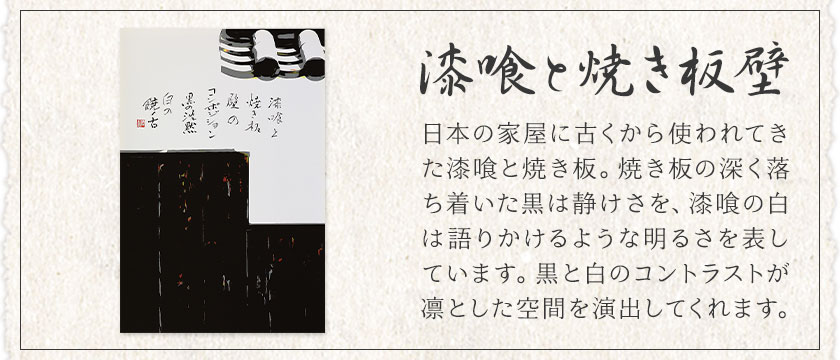 漆喰と焼き板壁
日本の家屋に古くから使われてき
た漆喰と焼き板。焼き板の深く落
ち着いた黒は静けさを、漆喰の白
は語りかけるような明るさを表し
ています。黒と白のコントラストが
凛とした空間を演出してくれます。
漆喰と
焼き板
壁の
コンポジション
黒の沈黙
白の
饒舌